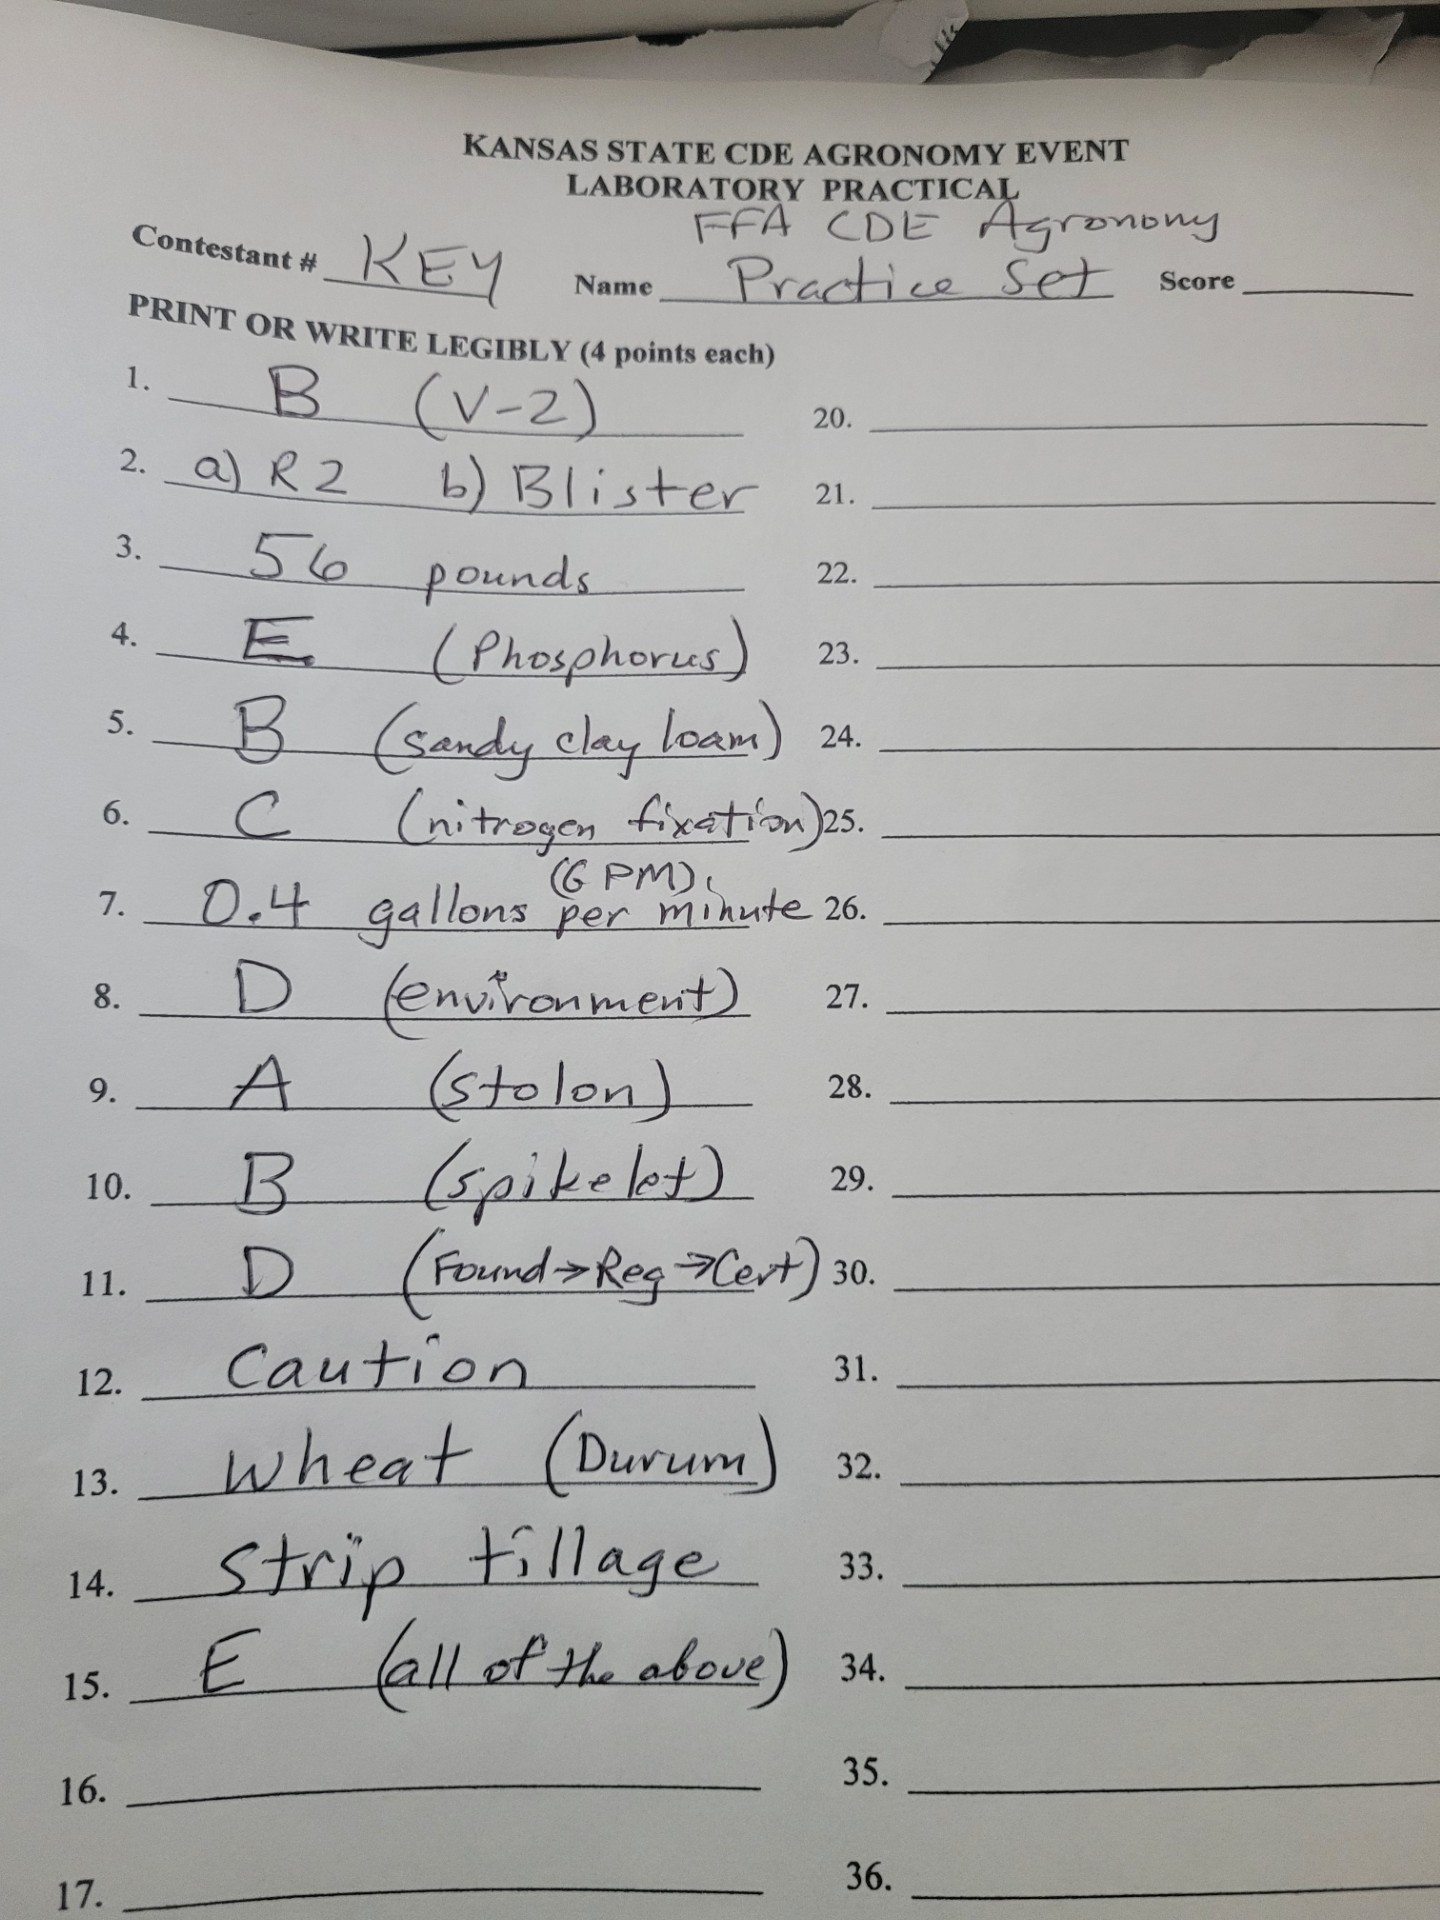 KANSAS STATE CDE AGRONOMY EVENT
LABORATORY PRACTICAL
FFA CDE Agronomy
Contestant # KEY Name Practice Set Score
PRINT OR WRITE LEGIBLY (4 points each)
1. B (V-2)
2. a) R2 b) Blister
3. 56 pounds
4. E (Phosphorus)
5. B (sandy clay loam)
6. C (nitrogen fixation)
7. 0.4 gallons per minute (GPM)
8. D (environment)
9. A (stolon)
10. B (spikelet)
11. D (Found→Reg→Cert)
12. Caution
13. wheat (Durum)
14. strip tillage
15. E (all of the above)
16.
17.
20.
21.
22.
23.
24.
25.
26.
27.
28.
29.
30.
31.
32.
33.
34.
35.
36.